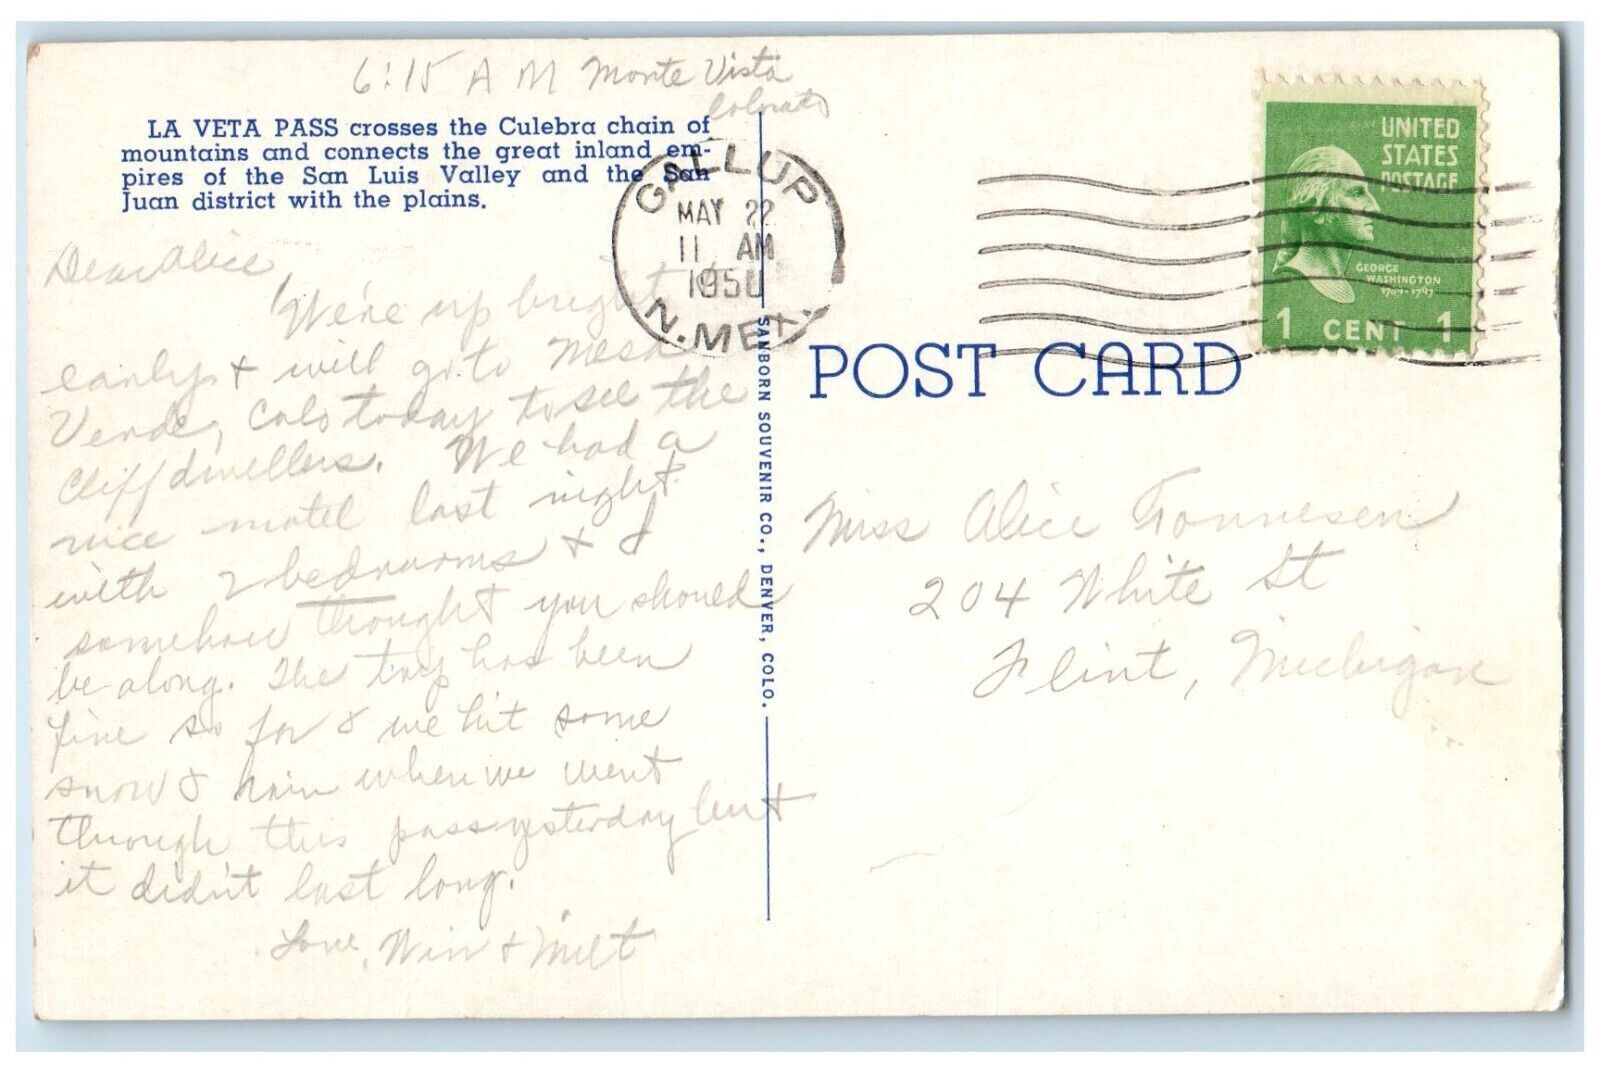 6:15 A M Monte Vista
Colorado
LA VETA PASS crosses the Culebra chain of
mountains and connects the great inland em-
pires of the San Luis Valley and the San
Juan district with the plains.
GALLUP
MAY 22
11 AM
1950
N. MEX.
UNITED
STATES
POSTAGE
GEORGE
WASHINGTON
1789-1797
1 CENT 1
POST CARD
SANBORN SOUVENIR CO., DENVER, COLO.
Dear Alice
We're up bright
early & will go to Mesa
Verde, Colo today to see the
Cliff dwellers. We had a
nice motel last night
with 2 bedrooms & I
somehow thought you should
be along. The trip has been
fine so far & we hit some
snow & rain when we went
through this pass yesterday but
it didn't last long.
Love, Win & Milt
Miss Alice Tonnesen
204 White St
Flint, Michigan